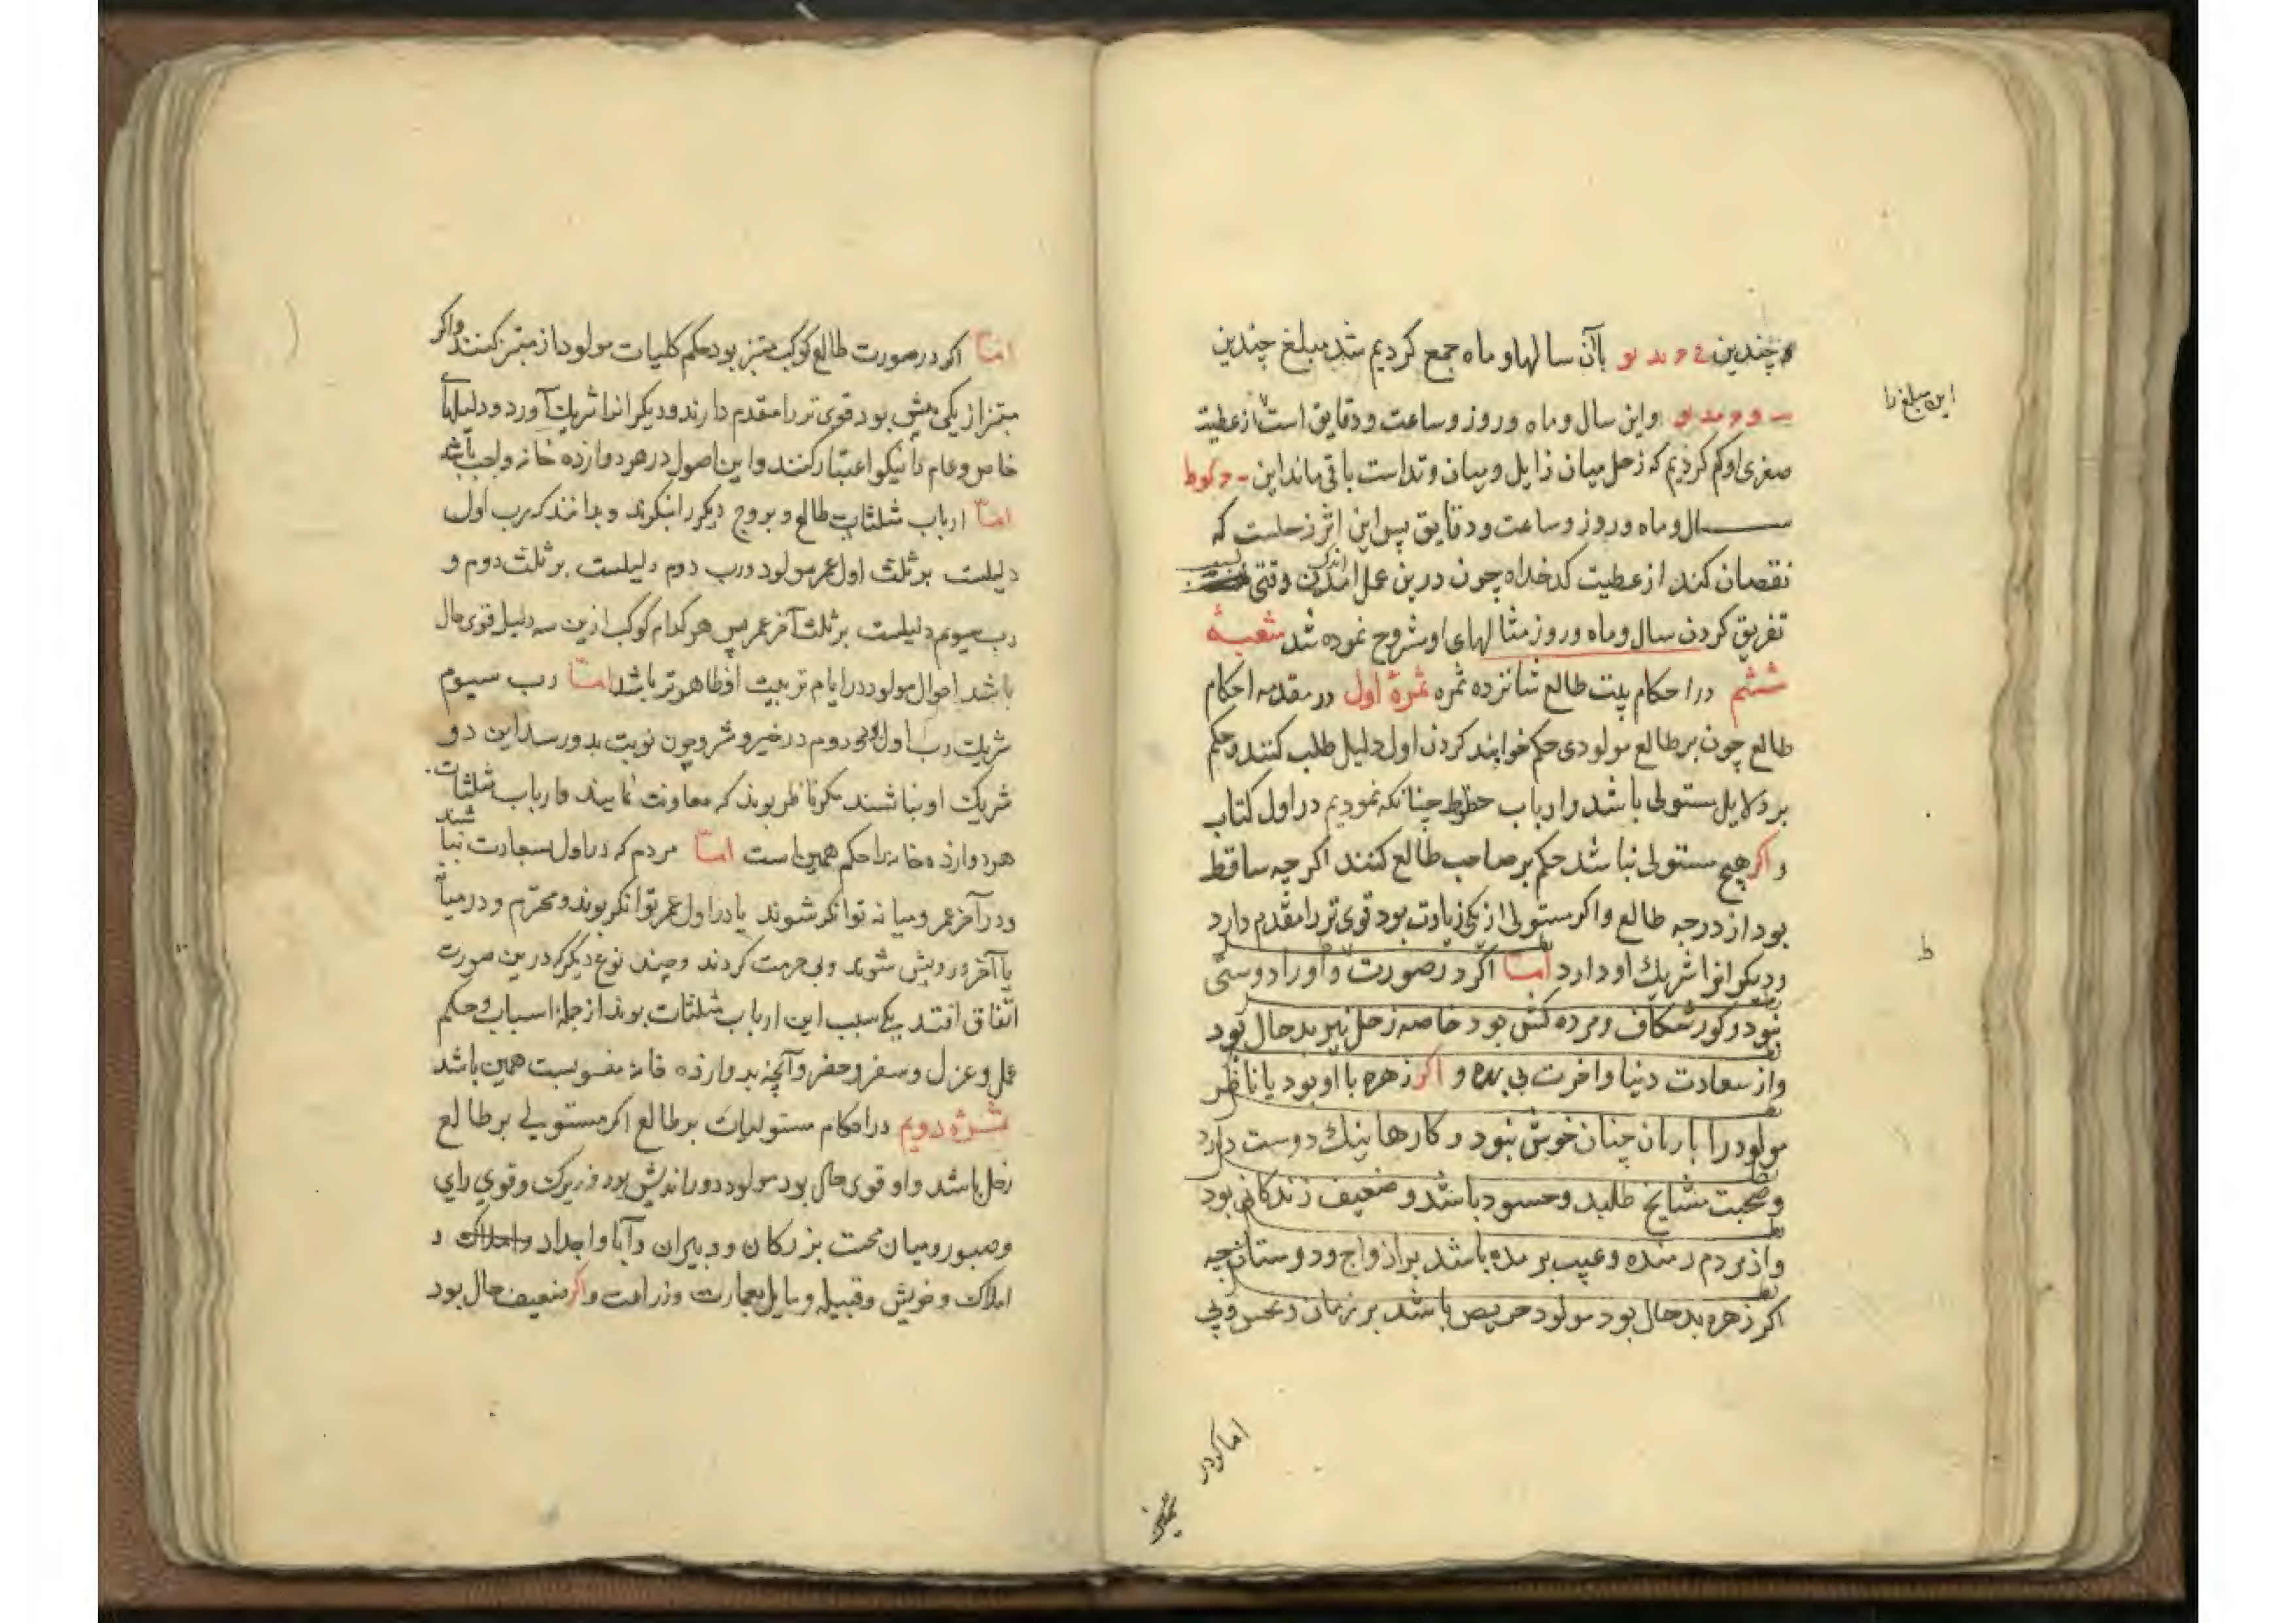 چندین باآن سالها و ماه جمع کردیم شد مبلغ چندین
این مبلغ را
واین سال و ماه و روز و ساعت و دقایق است از عطیت
صغری او کم کردیم که زحل میان زایل و میان وتد است باقی ماند این
سال و ماه و روز و ساعت و دقایق پس این اثر زحلست که
نقصان کند از عطیت کدخداه چون درین عمل وقتی
تفریق کردن سال و ماه و روز مثالهای او مشروح نموده شد شعبهٔ
ششم در احکام بیت طالع شانزده ثمره ثمرهٔ اول در مقدمه احکام
طالع چون بر طالع مولودی حکم خواهند کردن اول دلیل طلب کنند و حکم
بر دلایل مستولی باشد و ارباب حظوظ چنانکه نمودیم در اول کتاب
و اکر هیچ مستولی نباشد حکم بر صاحب طالع کنند اکر چه ساقط
بود از درجه طالع و اکر مستولی از یکی زیادت بود قوی تر را مقدم دارد
ط
و دیکرانرا شریک او دارد امّا اکر در صورت و او را دوستی
نبود و کور شکاف و مرده کش بود خاصه زحل نیز بد حال بود
و از سعادت دنیا و اخرت بی بهره و اکر زهره با او بود یا ناظر
مولود را با زنان چنان خوش نبود و کارها نیک دوست دارد
و صحبت مشایخ طلبد و حسود باشد و ضعیف زندکانی بود
و از مردم رمنده و عیب بر مده باشد بر ازواج و دوستان چه
اکر زهره بد حال بود مولود حریص باشد بر زنان و نحس و بی
اما اکر در
امّا اکر در صورت طالع کوکب مبتز بود حکم کلیات مولود از مبتز کنند و اکر
مبتز از یکی بیش بود قوی تر را مقدم دارند و دیکرانرا شریک آورد و دلیلهاء
خاص و عام را نیکو اعتبار کنند و این اصول در هر دوازده خانه واجب باشد
امّا ارباب مثلثات طالع و بروج دیکر را بنکرند و بدانند که رب اول
دلیلست بر ثلث اول عمر مولود و رب دوم دلیلست بر ثلث دوم و
رب سیوم دلیلست بر ثلث آخر عمر پس هر کدام کوکب ازین سه دلیل قوی حال
باشد احوال مولود در ایام تربیت او ظاهرتر باشد امّا رب سیوم
شریک رب اول و رب دوم در خیر و شر و چون نوبت بدو رسد این دو
شریک او نباشند مکر ناظر بوند که معاونت نمایند و ارباب مثلثات
هر دوازده خانه را حکم همین است امّا مردم که در اول سعادت نباشند
و در آخر عمر و میانه توانکر شوند یا در اول عمر توانکر بوند و محترم و در میانه
یا آخر درویش شوند و بی حرمت کردند و چند نوع دیکر که درین صورت
اتّفاق افتد یکی سبب این ارباب مثلثات بوند از جملهٔ اسباب و حکم
عمل و عزل و سفر و حضر و آنچه بدوازده خانه منسوبست همین باشد
ثمرهٔ دویم در احکام مستولیات بر طالع اکر مستولی بر طالع
زحل باشد و او قوی حال بود مولود دور اندیش بود و زیرک و قوی رای
و صبور و میان محبت بزرکان و دبیران و آبا و اجداد و املاک و
املاک و خویش و قبیله و مایل بعمارت و زراعت و اکر ضعیف حال بود